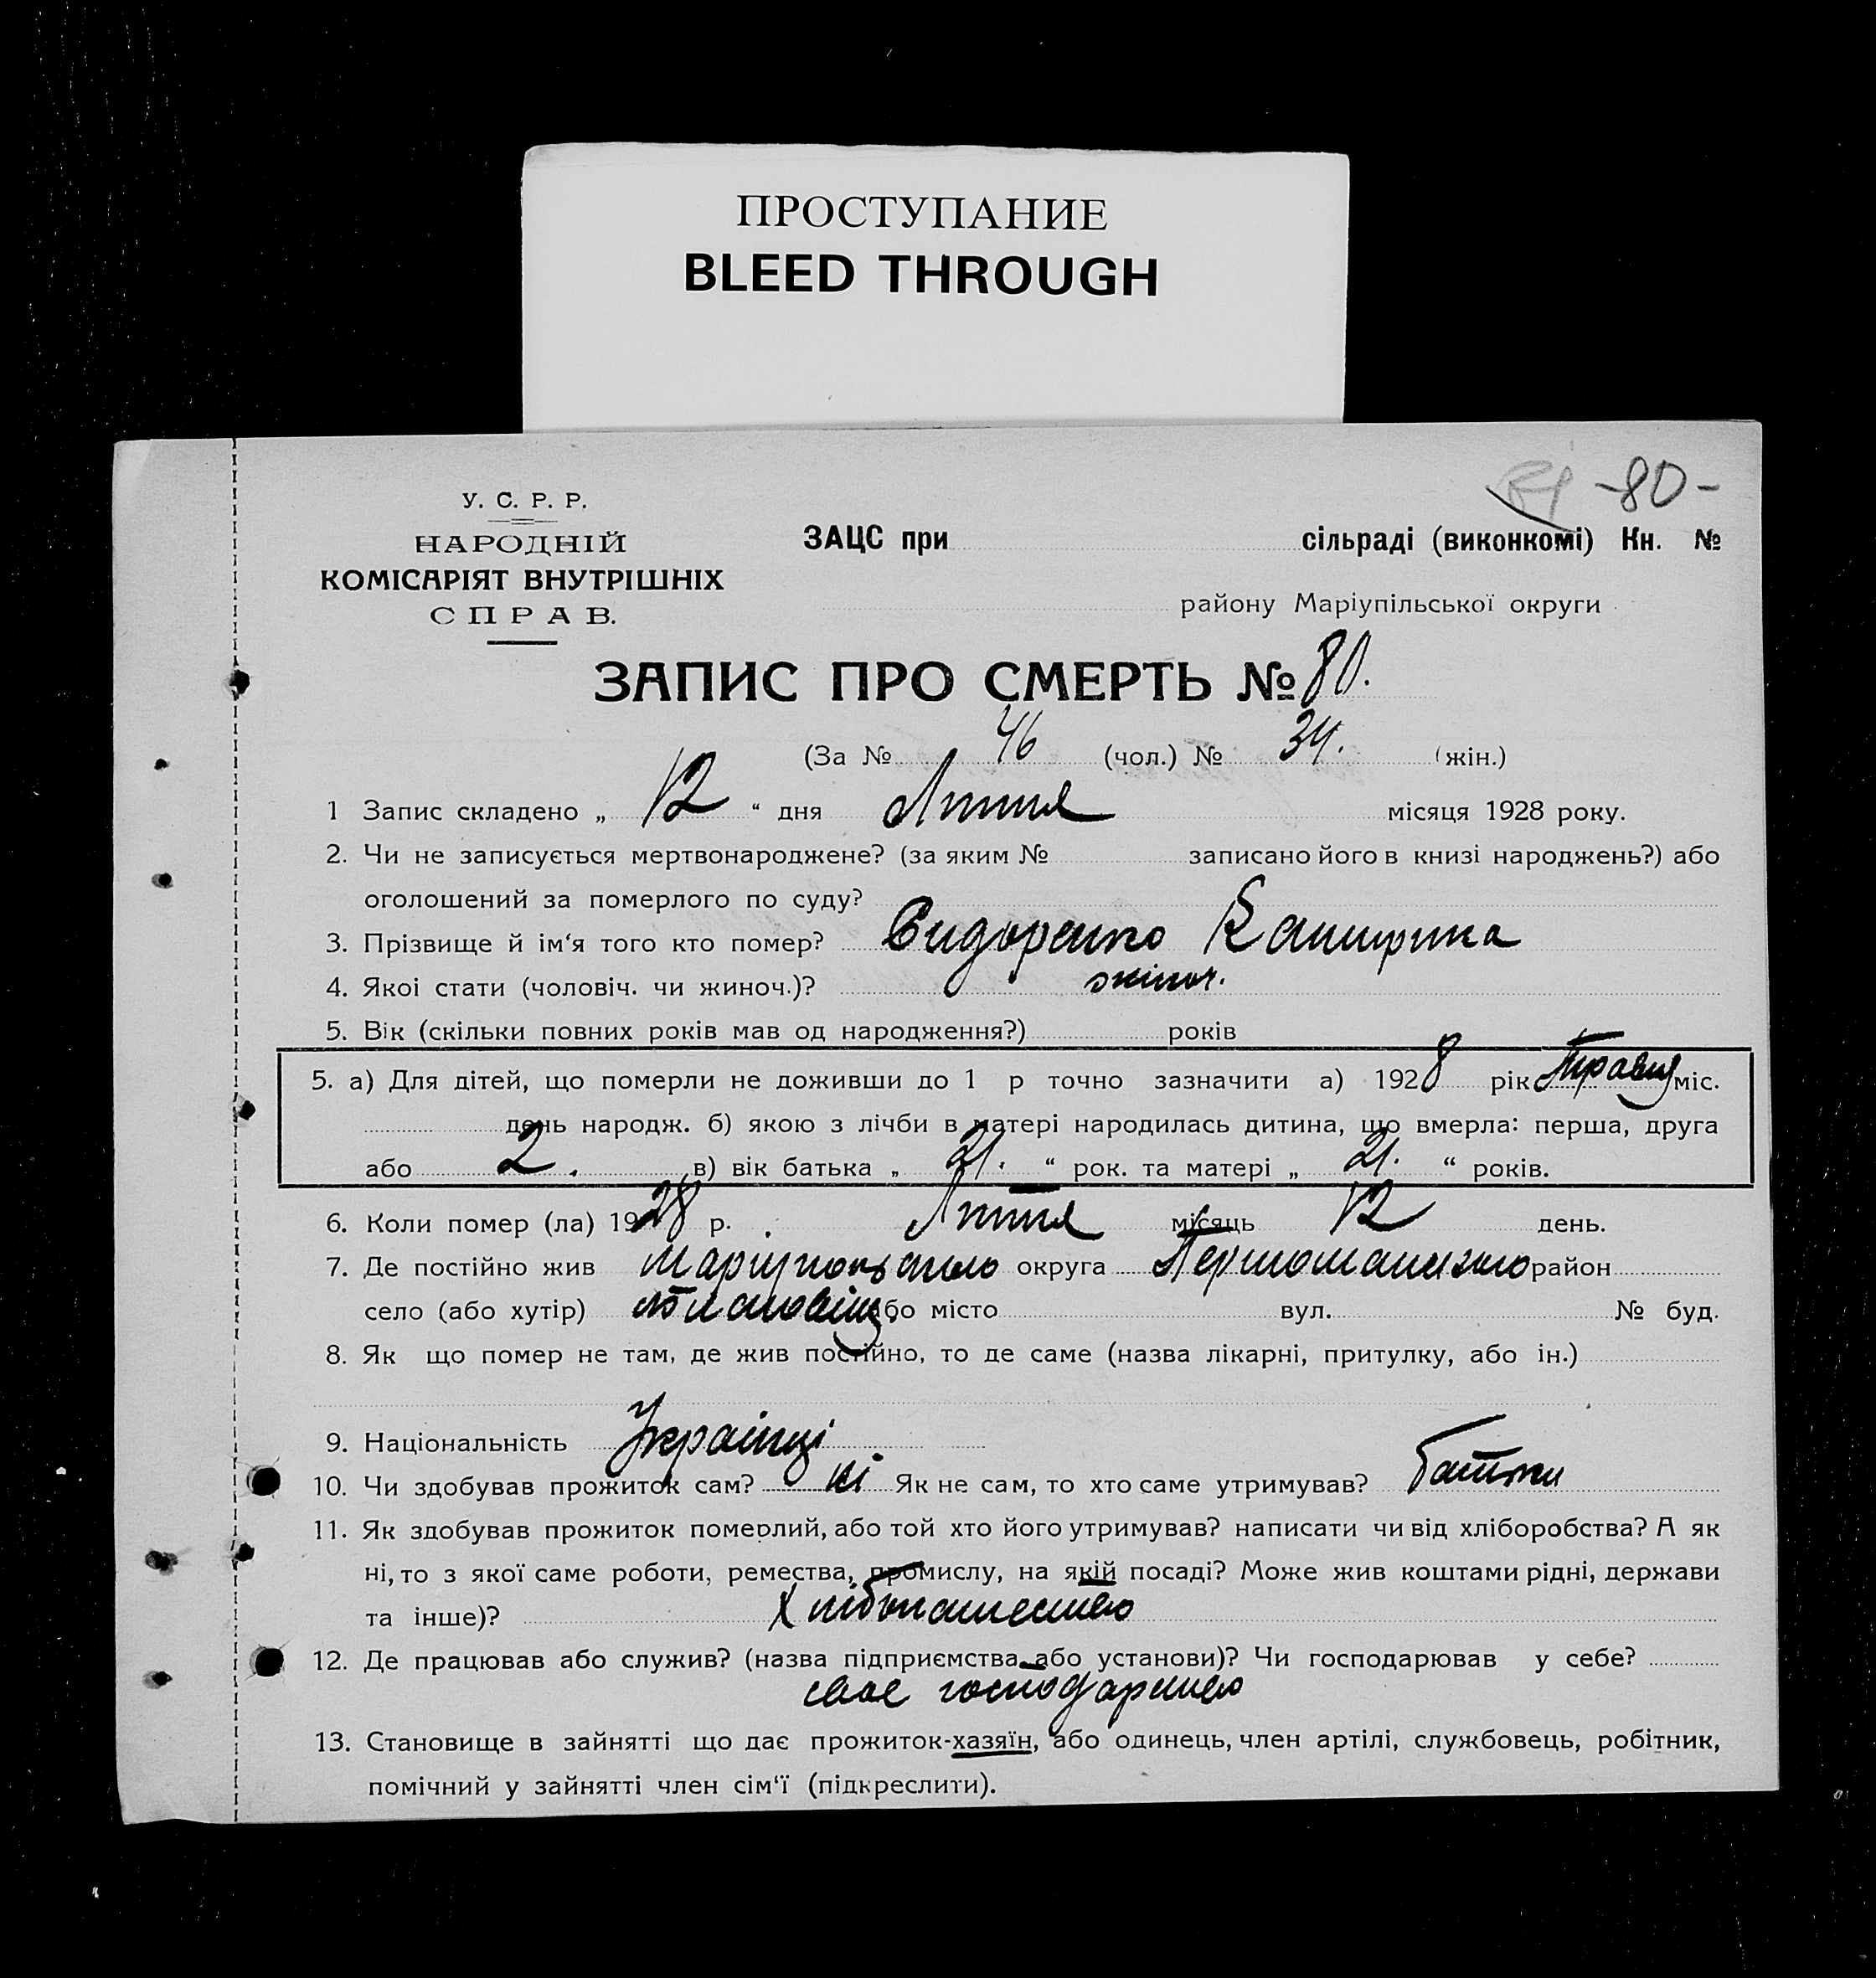 ПРОСТУПАНИЕ
BLEED THROUGH
-80-
У. С. Р. Р.
НАРОДНІЙ
КОМІСАРІЯТ ВНУТРІШНІХ
СПРАВ.
ЗАЦС при сільраді (виконкомі) Кн. №
району Маріупільської округи
ЗАПИС ПРО СМЕРТЬ № 80.
(За № 46 (чол.) № 34. (жін.)
1 Запис складено „ 12 “ дня Липня місяця 1928 року.
2. Чи не записується мертвонароджене? (за яким № записано його в книзі народжень?) або
оголошений за померлого по суду?
3. Прізвище й ім‘я того кто помер? Сидоренко
4. Якоі стати (чоловіч. чи жиноч.)? жіноч.
5. Вік (скільки повних років мав од народження?) років
5. а) Для дітей, що померли не доживши до 1 р точно зазначити а) 1928 рік Травня міс.
день народж. б) якою з лічби в матері народилась дитина, що вмерла: перша, друга
або 2. в) вік батька „ 21. “ рок. та матері „ 21. “ років.
6. Коли помер (ла) 1928 р. Липня місяць 12 день.
7. Де постійно жив округа район
село (або хутір) або місто вул. № буд.
8. Як що помер не там, де жив постійно, то де саме (назва лікарні, притулку, або ін.)
9. Національність Українці
10. Чи здобував прожиток сам? ні Як не сам, то хто саме утримував? батьки
11. Як здобував прожиток померлий, або той хто його утримував? написати чи від хліборобства? А як
ні, то з якої саме роботи, ремества, промислу, на якій посаді? Може жив коштами рідні, держави
та інше)? Хлібопашество
12. Де працював або служив? (назва підприємства або установи)? Чи господарював у себе?
своє господарство
13. Становище в зайнятті що дає прожиток-хазяїн, або одинець, член артілі, службовець, робітник,
помічний у зайнятті член сім‘ї (підкреслити).